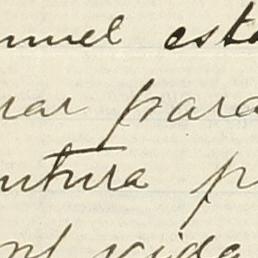 nuel esta
rar para
ntura p
vida